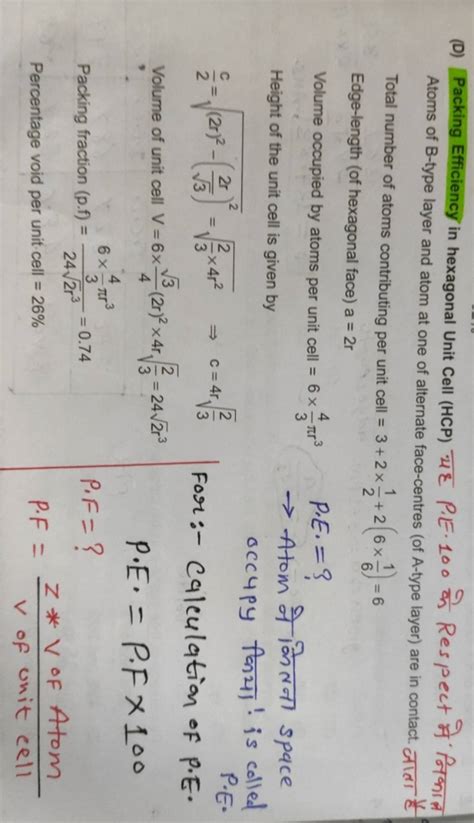 (D) Packing Efficiency in hexagonal Unit Cell (HCP) यह P.E. 100 के Respect में निकाला जाता है
Atoms of B-type layer and atom at one of alternate face-centres (of A-type layer) are in contact.
Total number of atoms contributing per unit cell = 3 + 2 × 1/2 + 2 (6 × 1/6) = 6
Edge-length (of hexagonal face) a = 2r
Volume occupied by atoms per unit cell = 6 × 4/3 πr³
Height of the unit cell is given by
c/2 = √((2r)² − (2r/√3)²) = √(2/3 × 4r²) ⇒ c = 4r√(2/3)
Volume of unit cell V = 6 × √3/4 (2r)² × 4r√(2/3) = 24√2r³
Packing fraction (p.f) = (6 × 4/3 πr³)/(24√2r³) = 0.74
Percentage void per unit cell = 26%
P.E. = ?
→ Atom ने कितना space
occupy किया! is called
P.E.
For:- Calculation of P.E.
P.E. = P.F × 100
P.F = ?
P.F = Z * V of Atom / V of unit cell